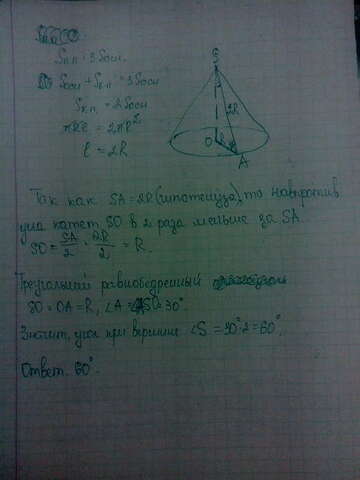 Sп.п = 3Sосн.
Sосн + Sк.п = 3Sосн
Sк.п. = 2Sосн
πRl = 2πR²
l = 2R
S
2R
O
R
A
Так как SA = 2R (гипотенуза), то
угла катет SO в 2 раза меньше за SA.
SO = SA/2 = 2R/2 = R.
Треугольник равнобедренный
SO = OA = R, ∠A = ∠ASO = 30°.
Значит, угол при вершине ∠S = 30°·2 = 60°.
Ответ. 60°.